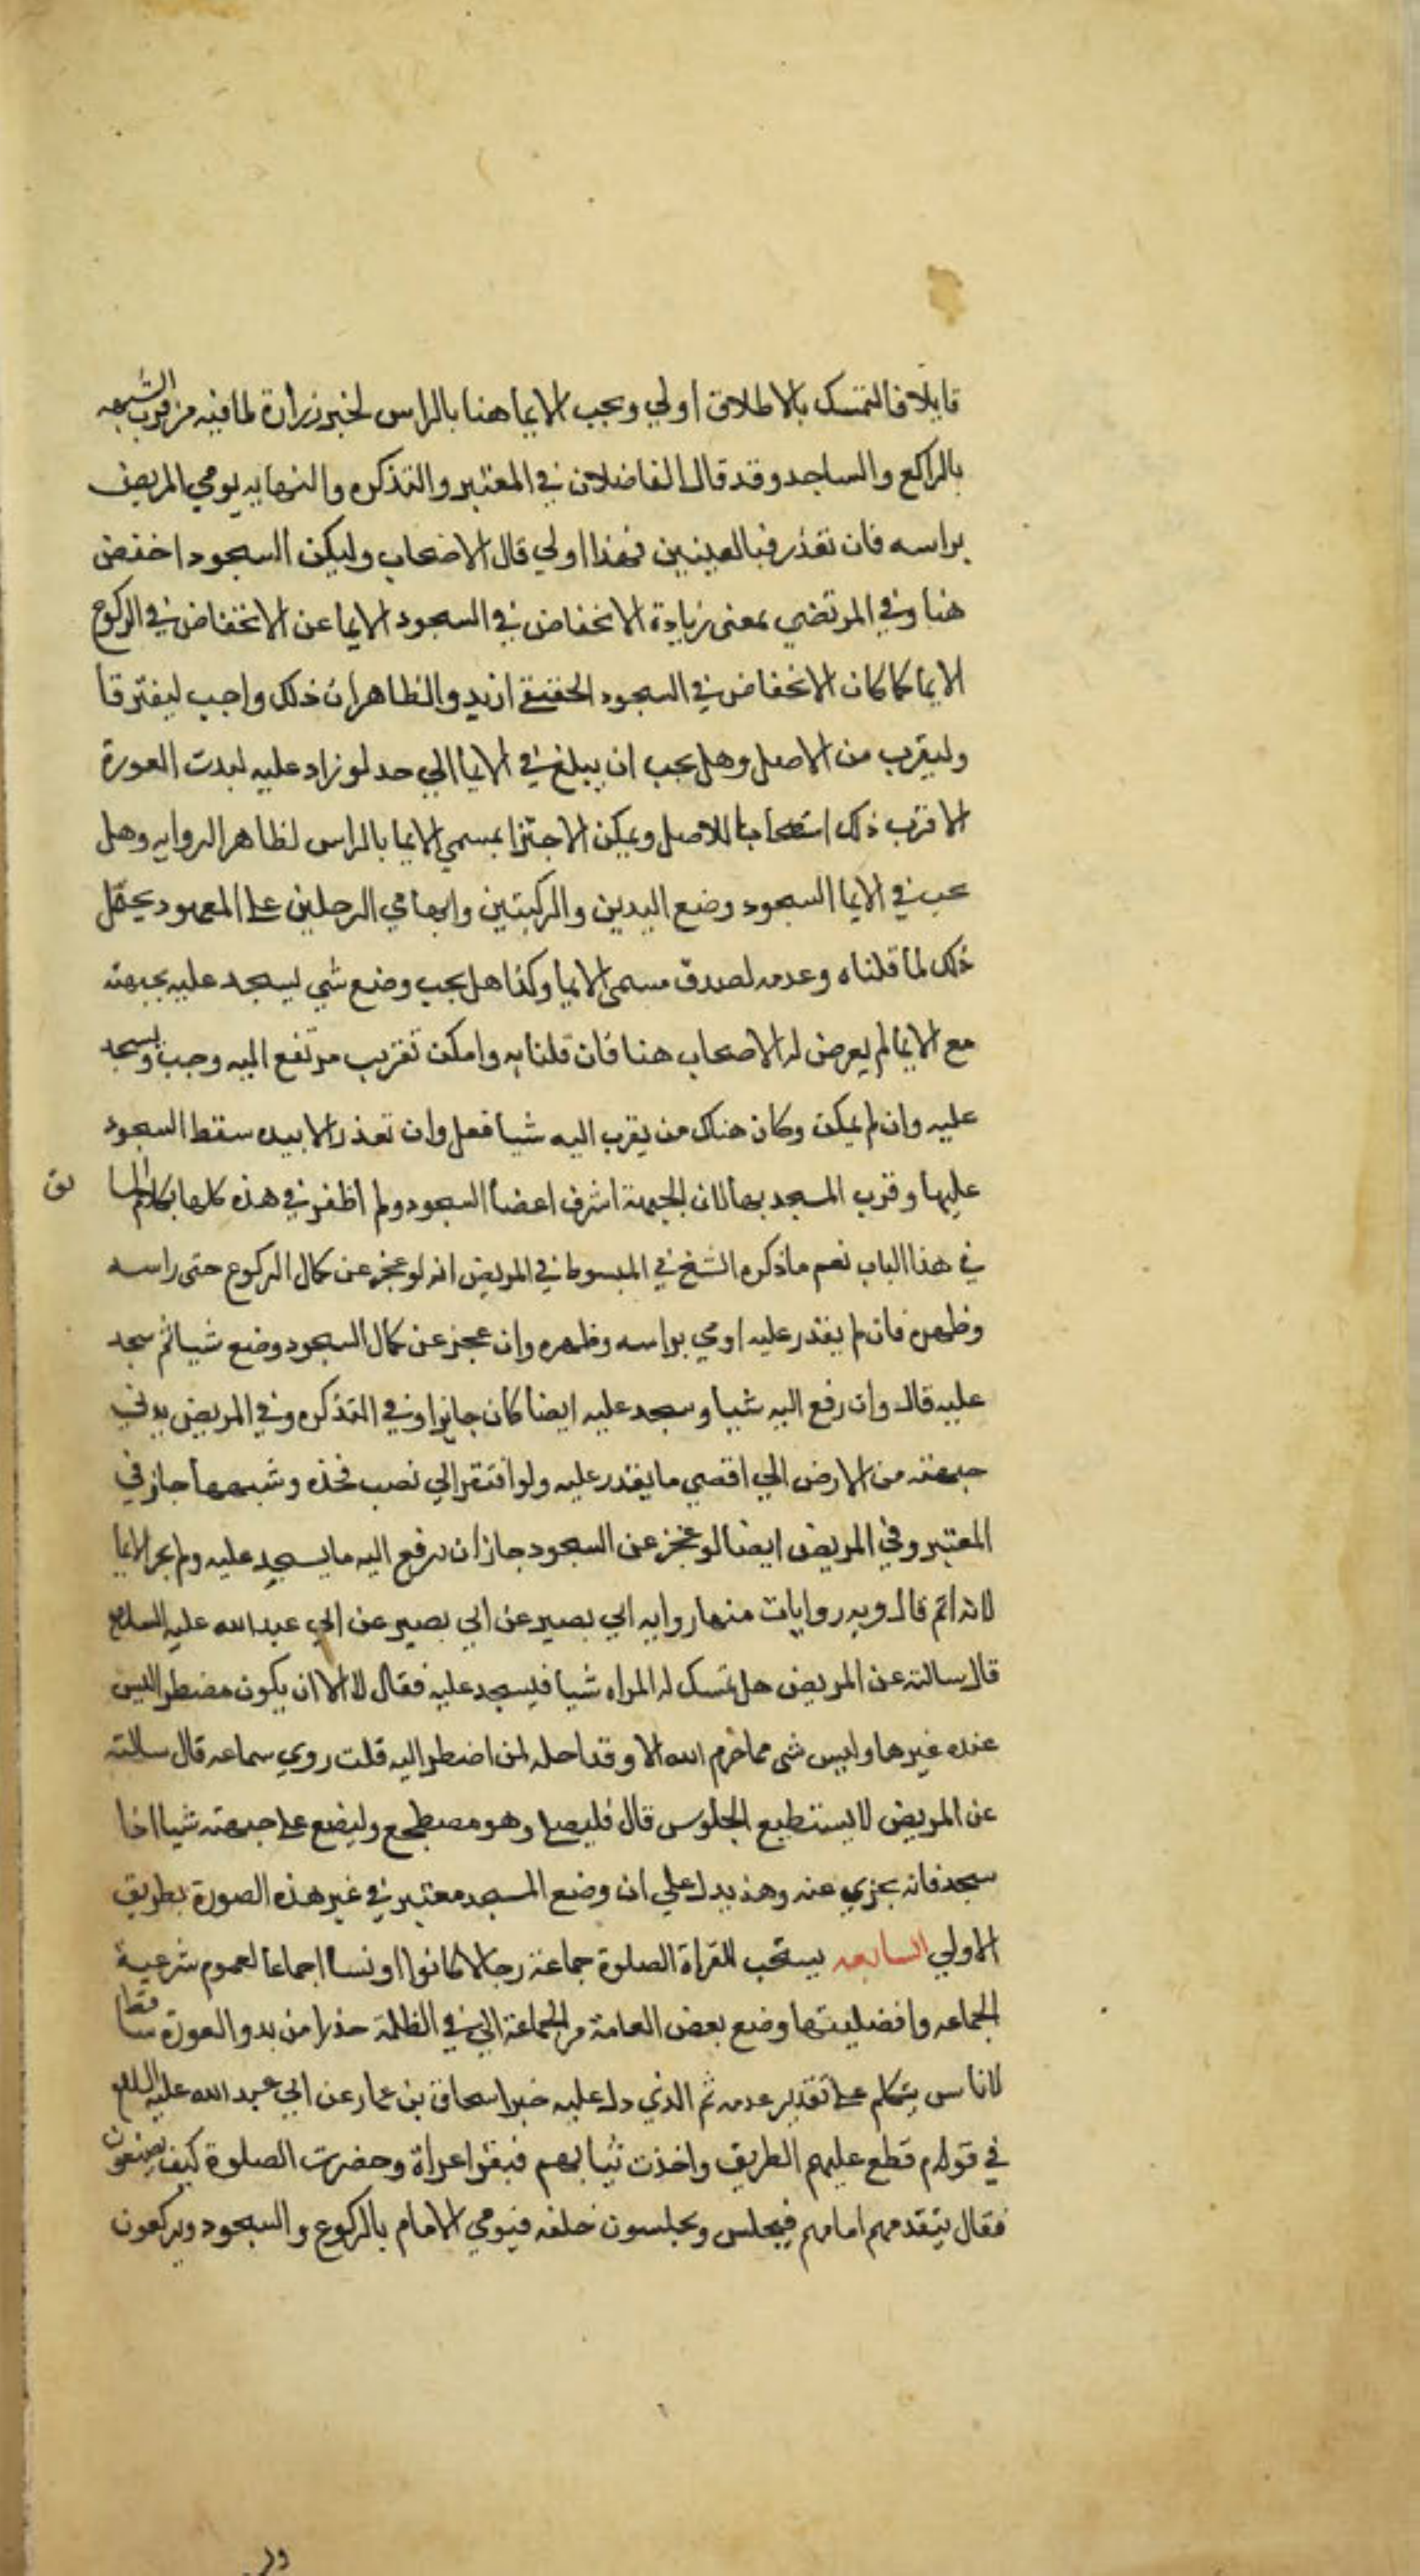 قايلا فالتمسك بالاطلاق اولي ويجب الايما هنا بالراس لخبر زرارة لما فيه من قرب الشبه
بالراكع والساجد وقد قال الفاضلان في المعتبر والتذكره والنهايه يومي المريض
براسه فان تعذر فبالعينين فهذا اولي قال الاصحاب وليكن السجود اخفض
هنا وفي المرتضي بمعنى زيادة الانخفاض في السجود الايما عن الانخفاض في الركوع
الايما كما كان الانخفاض في السجود الحقيقي ازيد والظاهر ان ذلك واجب ليفترقا
وليقرب من الاصل وهل يجب ان يبلغ في الايما الي حد لو زاد عليه لبدت العورة
الاقرب ذلك استصحابا للاصل ويمكن الاجتزا بمسمي الايما بالراس لظاهر الروايه وهل
يجب في الايما السجود وضع اليدين والركبتين وابهامي الرجلين على المعهود يحتمل
ذلك لما قلناه وعدمه لصدق مسمى الايما وكذا هل يجب وضع شي ليسجد عليه بجبهته
مع الايما لم يعرض له الاصحاب هنا فان قلنا به وامكن تقريب مرتفع اليه وجب ويسجد
عليه وان لم يمكن وكان هناك من يقرب اليه شيا فعل وان تعذر الا بيده سقط السجود
عليها وقرب المسجد بها لان الجبهة اشرف اعضا السجود ولم اظفر في هذه كلها بكلام السا بق
في هذا الباب نعم ما ذكره الشيخ في المبسوط في المريض انه لو عجز عن كمال الركوع حتى راسه
وظهره فان لم يقدر عليه اومي براسه وظهره وان عجز عن كمال السجود وضع شيا ثم سجد
عليه قال وان رفع اليه شيا وسجد عليه ايضا كان جايزا وفي التذكره وفي المريض يدني
جبهته من الارض الي اقصي ما يقدر عليه ولو افتقر الي نصب فخذه وشبهها جاز في
المعتبر وفي المريض ايضا لو عجز عن السجود جاز ان يرفع اليه ما يسجد عليه ولم يجز الايما
لانه اتم قال وبه روايات منها روايه ابي بصير عن ابي بصير عن ابي عبد الله عليه السلام
قال سالته عن المريض هل تمسك له المراه شيا فيسجد عليه فقال لا الا ان يكون مضطرا ليس
عنده غيرها وليس شى مما حرم الله الا وقد احله لمن اضطر اليه قلت روي سماعه قال سالته
عن المريض لا يستطيع الجلوس قال فليصل وهو مضطجع وليضع على جبهته شيا اذا
سجد فانه يجزي عنه وهذ يدل علي ان وضع المسجد معتبر في غير هذه الصورة بطريق
الاولي السابعه يستحب للعراة الصلوة جماعة رجالا كانوا او نسا اجماعا لعموم شرعية
الجماعه وافضليتها ومنع بعض العامة من الجماعة الا في الظلمة حذرا من بدو العورة ساقط
لانا سـ يتكلم على تقدير عدمه ثم الذي دل عليه خبر اسحاق بن عمار عن ابي عبد الله عليه السلام
في قولهم قطع عليهم الطريق واخذت ثيابهم فبقوا عراة وحضرت الصلوة كيف يصنعون
فقال يتقدمهم امامهم فيجلس ويجلسون خلفه فيومي الامام بالركوع والسجود ويركعون